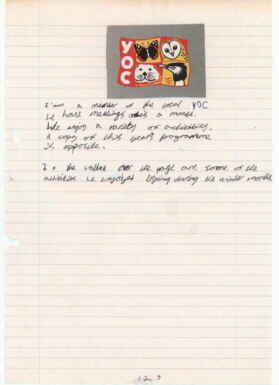 YOC
I am a member of the local YOC
We have meetings once a month.
We enjoy a variety of activities.
A copy of this years programme
is opposite.
the page are some of the
activities we enjoyed during the winter months